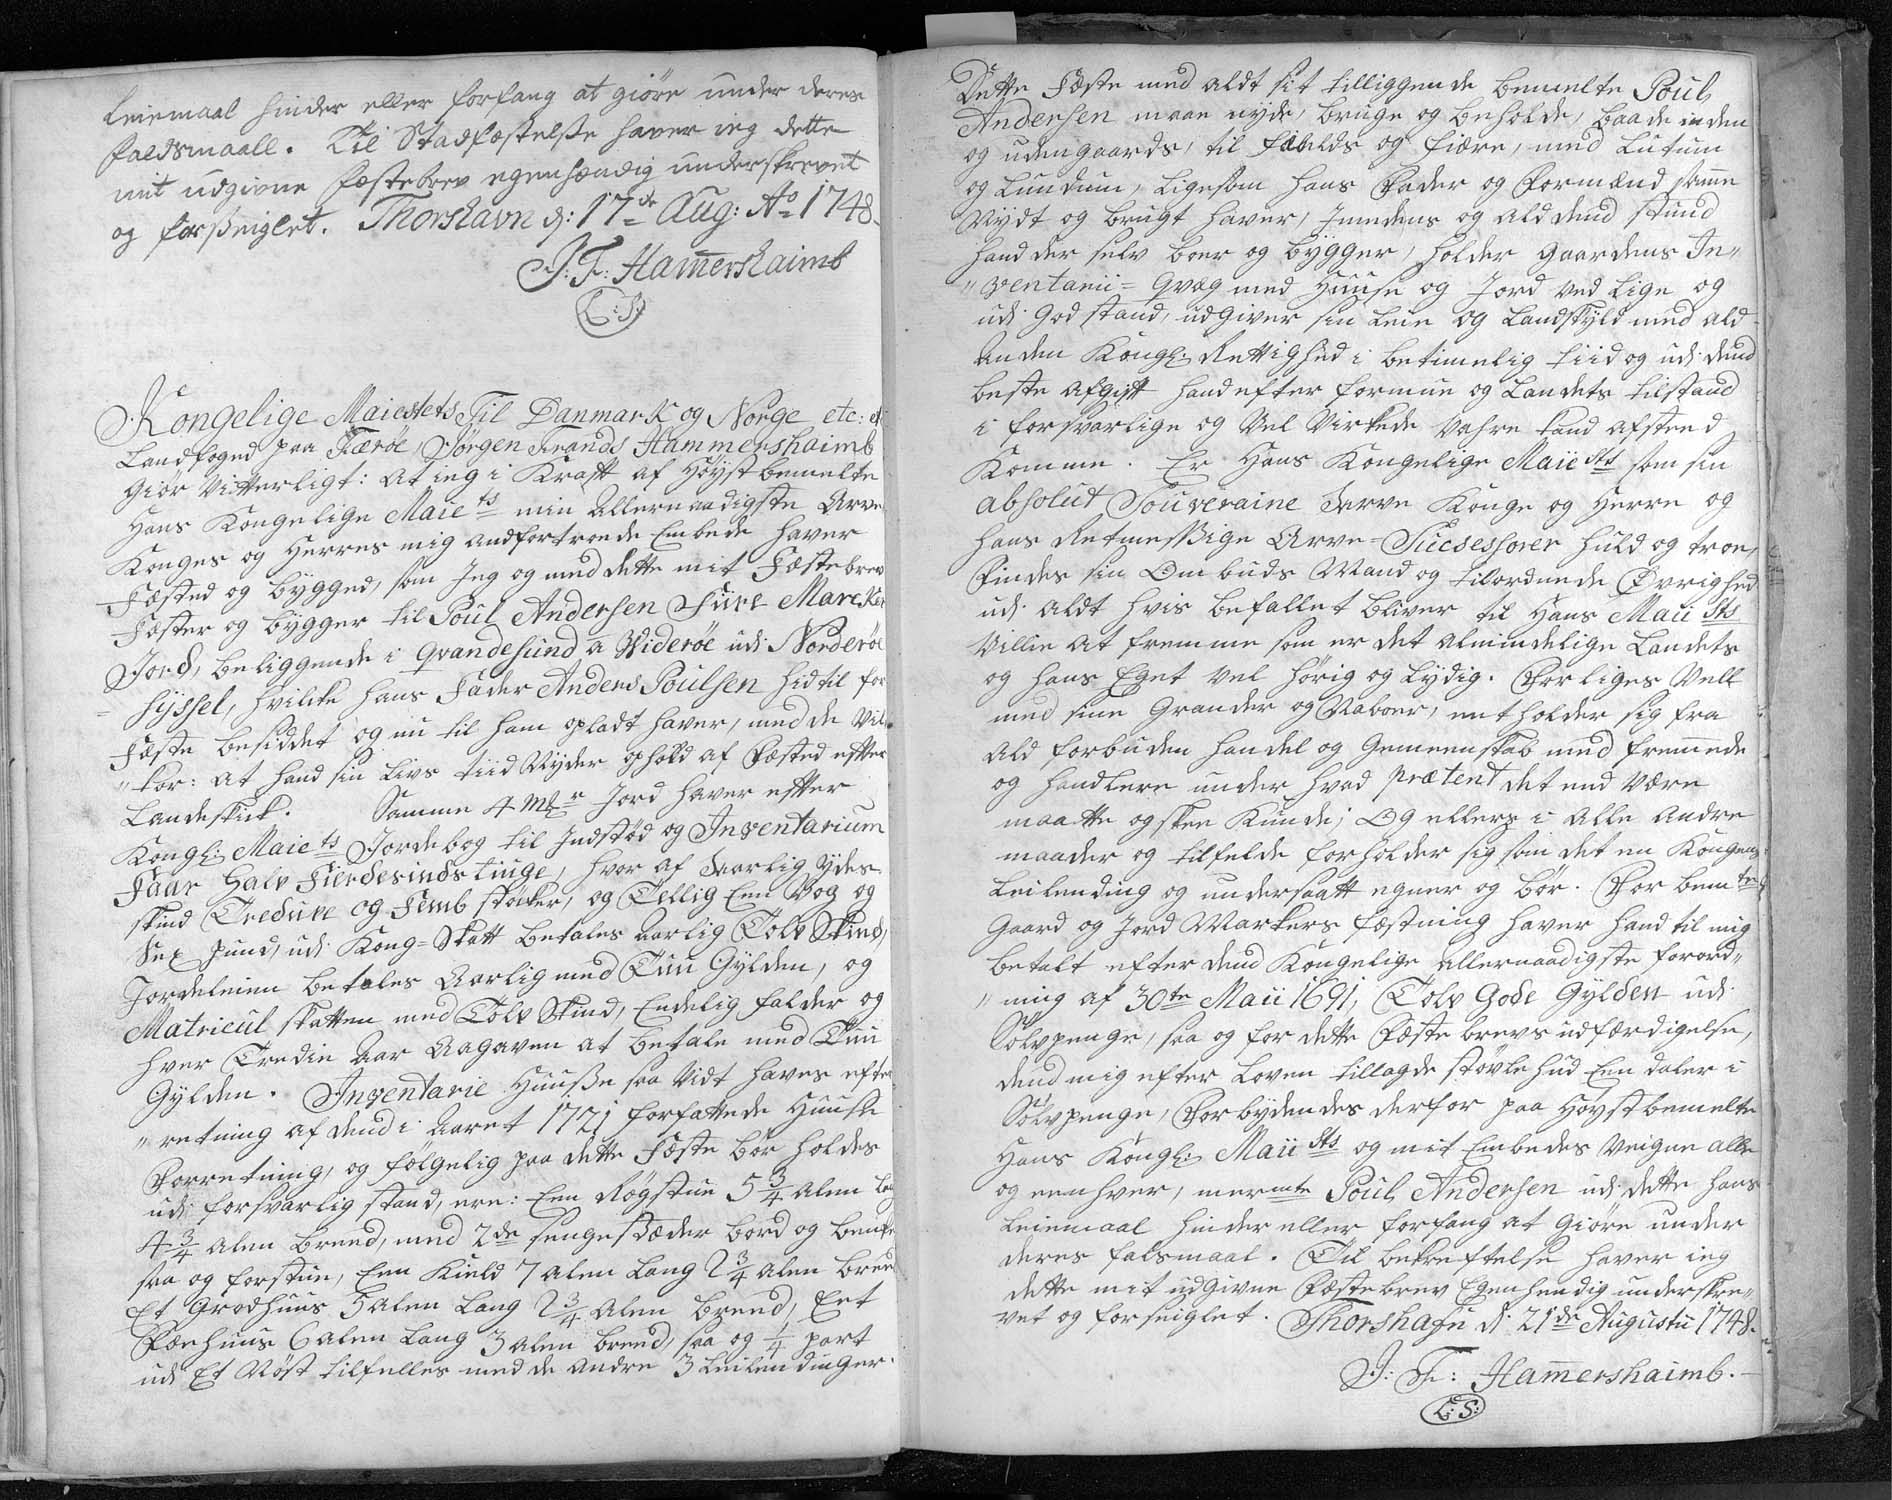 Leiemaal hinder eller forfang at giöre under deres
faldsmaall. Til Stadfæstelse haver ieg dette
mit udgivne fæstebrev egenhændig underskrevet
og forseiglet. Thorshavn d: 17de Aug: Ao 1748.
J: F: Hammershaimb
L: S:
Kongelige Maiestets Til Danmark og Norge etc: etc
Landfoged paa Færöe Jörgen Frands Hammershaimb
Giör Vitterligt: At ieg i Kraft af Höystbemelte
Hans Kongelige Maiets min Allernaadigste Arve
Konges og Herres mig anbfortroede Embede haver
Fæsted og bÿgged, som Jeg og med dette mit Fæstebrev
Fæster og bygger til Poul Andersen Fiire Marcker
Jord, beliggende i Qvandesund a Wideröe udi Norderöe
Sÿssel, hvilcke hans Fader Anders Poulsen hidtil for
Fæste besiddet og nu til ham opladt haver, med de Vil-
"kor: at hand sin Livs tiid Nyder ophold af Fæsted efter
Landeskick. Samme 4 mkr Jord haver efter
Kongl: Maiets Jordebog til Indstöd og Inventarium
Faar Halv Fierdesindstiuge, hvor af Aarlig ÿdes
skind Tredive og Femb støcker, og Tellig Een Vog og
Sex pund, udi Kong-Skatt betales Aarlig Tolv Skind,
Jordeleien betales Aarlig med Tiu Gÿlden, og
Matricul skatten med Tolv Skind, Endelig falder og
hver Tredie Aar Aagaven at betale med Tiu
Gÿlden. Inventarie Huuse saa Vidt haves efter
"retning af dend i Aaret 1721 forfattede Huuse
Forretning, og fölgelig paa dette Fæste bör holdes
udi forsvarlig stand, ere: Een Rögstue 5 3/4 Alen Lang
4 3/4 Alen breed, med 2de sengestæder bord og bencke
saa og forstue, Een Kield 7 Alen Lang 2 3/4 Alen breed
Et Grodhuus 5 Alen Lang 2 3/4 Alen breed, Eet
Færhuus 6 Alen Lang 3 Alen breed, saa og 1/4 part
udi Et Nöst tilfelles med de andre 3 Leilendinger.
Dette Fæste med aldt sit tilliggende bemelte Poul
Andersen maae nyde, bruge og beholde, baade inden
og udengaards, til fields og fiære, med Lutum
og Lundum, ligesom hans Fader og Formænd samme
Nÿdt og brugt haver, Jmedens og ald dend stund
hand der selv boer og bygger, holder gaardens In"
"ventarii= Qvæg med Huuse og Jord ved Lige og
udi god stand, udgiver sin Leie og Landskÿld med ald
Anden Kongl: Rettighed i betimelig tiid og udi dend
beste afgift hand efter formue og Landets tilstand
i forsvarlige og Vel Virkede Vahre kand afsted
Komme. Er Hans Kongelige Maiests som sin
absolut Souveraine Arve Konge og Herre og
hans Retmessige Arve-Sucsessorer huld og troe,
Findes sin Ombuds Mand og tilordnede Övrighed
udi aldt hvis befallet bliver til Hans Maiists
Villie at fremme som er det almindelige Landets
og hans Eget vel hörig og Lydig. Forliges Vell
med sine Grander og Naboer, entholder sig fra
Ald forbuden handel og Gemeenskab med fremmede
og handlere under hvad prætent det end være
maatte og skee Kunde; Og ellers i alle Andre
maader og tilfelde forholder sig som det en Konges
Leilending og undersaatt egner og bör. For bemte
Gaard og Jord Markers fæstning haver hand til mig
betalt efter dend Kongelige allernaadigste forord"
"ning af 30te Maii 1691, Tolv Gode Gylden udi
Sölvpenge, saa og for dette Fæste brevs udfærdigelse,
dend mig efter Loven tillagde stövle hud Een daler i
Sölvpenge, Forbydendes derfor paa Höystbemelte
Hans Kongl: Maiists og mit Embedes Veigne alle
og eenhver, mermte Poul Andersen udi dette hans
Leiemaal hinder eller forfang at Giöre under
deres falsmaal. Til bekreftelse haver ieg
dette mit udgivne Fæstebrev Egenhendig underskre"
vet og forseiglet. Thorshafn d: 21de Augustii 1748.
J: F: Hammershaimb.
L: S: